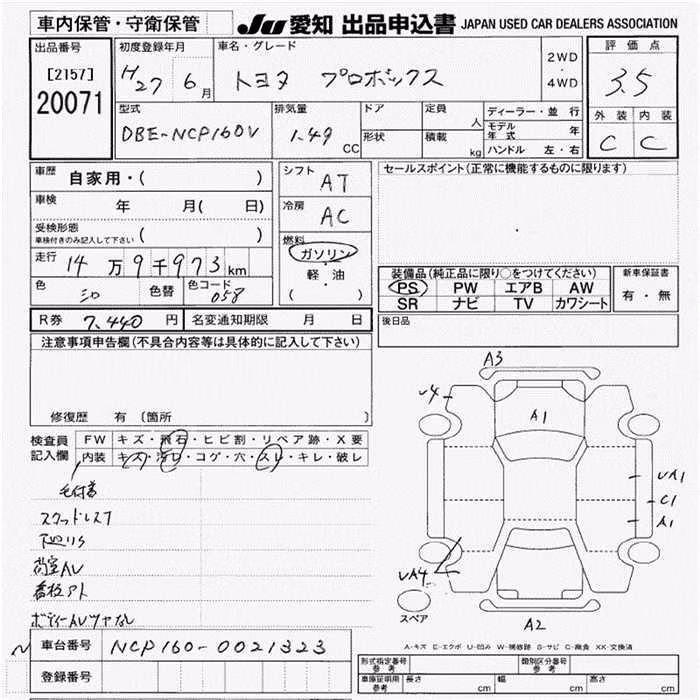 車内保管・守衛保管
JU 愛知 出品申込書 JAPAN USED CAR DEALERS ASSOCIATION
出品番号
[2157]
20071
初度登録年月
H27 6月
車名・グレード
トヨタ プロボックス
2WD
・
4WD
評価点
3.5
外装 内装
C C
型式
DBE-NCP160V
排気量
1.49 CC
ドア
形状
定員 人
積載 kg
ディーラー・並行
モデル年式 年
ハンドル 左・右
車歴 自家用・( )
車検 年 月( 日)
受検形態
車検付きのみ記入して下さい
走行 14万9千973km
色 シロ 色替 色コード 058
シフト AT
冷房 AC
燃料
ガソリン
軽・油
( )
セールスポイント(正常に機能するものに限ります)
装備品(純正品に限り○をつけてください)
PS PW エアB AW
SR ナビ TV カワシート
新車保証書
有・無
R券 7,440円 名変通知期限 月 日
後日品
注意事項申告欄(不具合内容等は具体的に記入して下さい)
修復歴 有 〔箇所 〕
検査員
記入欄
FW キズ・飛石・ヒビ割・リペア跡・X要
内装 キズ・汚レ・コゲ・穴・スレ・キレ・破レ
スタッドレス
下廻りサ
荷室AU
ボディー
A3
A1
UA1
C1
A1
UA4
A2
スペア
A-キズ E-エクボ U-凹み W-補修跡 S-サビ C-腐食 XX-交換済
車台番号 NCP160-0021323
登録番号
形式指定番号 参考
類別区分番号 参考
車庫証明用 参考 長さ cm 幅 cm 高さ cm